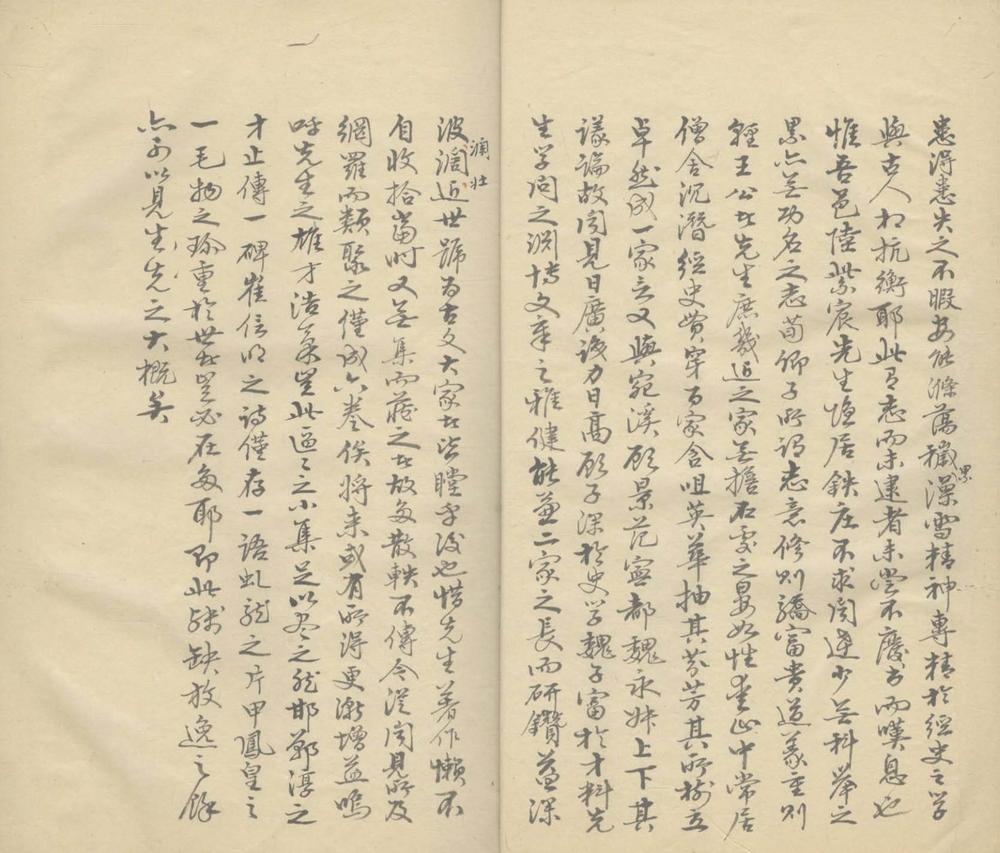 患得患失之不暇安能滌蕩穢累澡雪精神專精於經史之學
與古人相抗衡耶此有志而未逮者未嘗不廢書而嘆息也
惟吾邑陸紫宸先生隱居鉄庄不求聞達少無科舉之
累亦無功名之志荀卿子所謂志意修則驕富貴道義重則
輕王公者先生庶幾近之家無擔石處之晏如性愛山中常居
僧舍沉潛經史貫穿百家含咀英華抽其芬芳其所樹立
卓然成一家言又與宛溪顧景范寧都魏永叔上下其
議論故聞見日廣識力日高顧子深於史學魏子富於才料先
生學問之淵博文章之雅健能兼二家之長而研鑽益深
波瀾壯濶近世號為古文大家者皆瞠乎後也惜先生著作懶不
自收拾當時又無集而蔣之者故多散軼不傳今從聞見所及
網羅而類聚之僅成六卷俟將来或有所得更漸增益嗚
呼先生之雄才浩氣豈此區々之小集足以尽之然邯鄲淳之
才止傳一碑崔信明之詩僅存一語虬龍之片甲鳳皇之
一毛物之珍重於世者豈必在多耶即此殘缺放逸之餘
亦可以見先生之大概矣